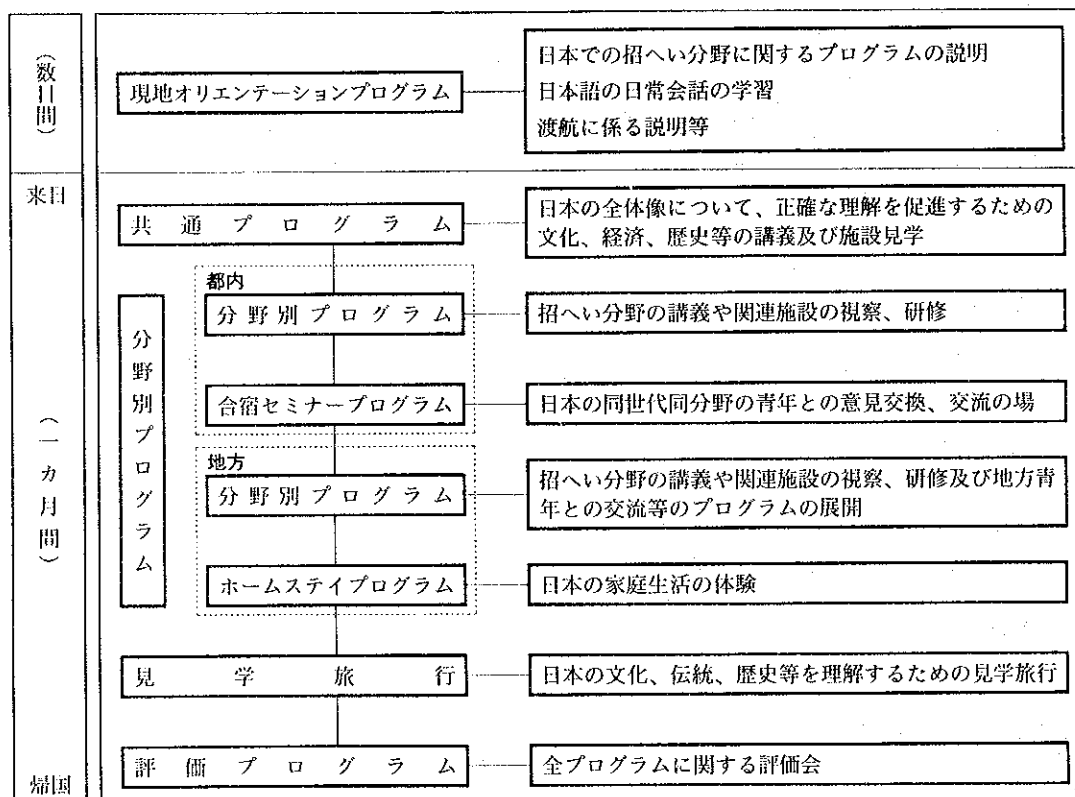 （数日間）
現地オリエンテーションプログラム
日本での招へい分野に関するプログラムの説明
日本語の日常会話の学習
渡航に係る説明等
来日
（一カ月間）
帰国
共通プログラム
日本の全体像について、正確な理解を促進するための
文化、経済、歴史等の講義及び施設見学
分野別プログラム
都内
分野別プログラム
招へい分野の講義や関連施設の視察、研修
合宿セミナープログラム
日本の同世代同分野の青年との意見交換、交流の場
地方
分野別プログラム
招へい分野の講義や関連施設の視察、研修及び地方青
年との交流等のプログラムの展開
ホームステイプログラム
日本の家庭生活の体験
見学旅行
日本の文化、伝統、歴史等を理解するための見学旅行
評価プログラム
全プログラムに関する評価会